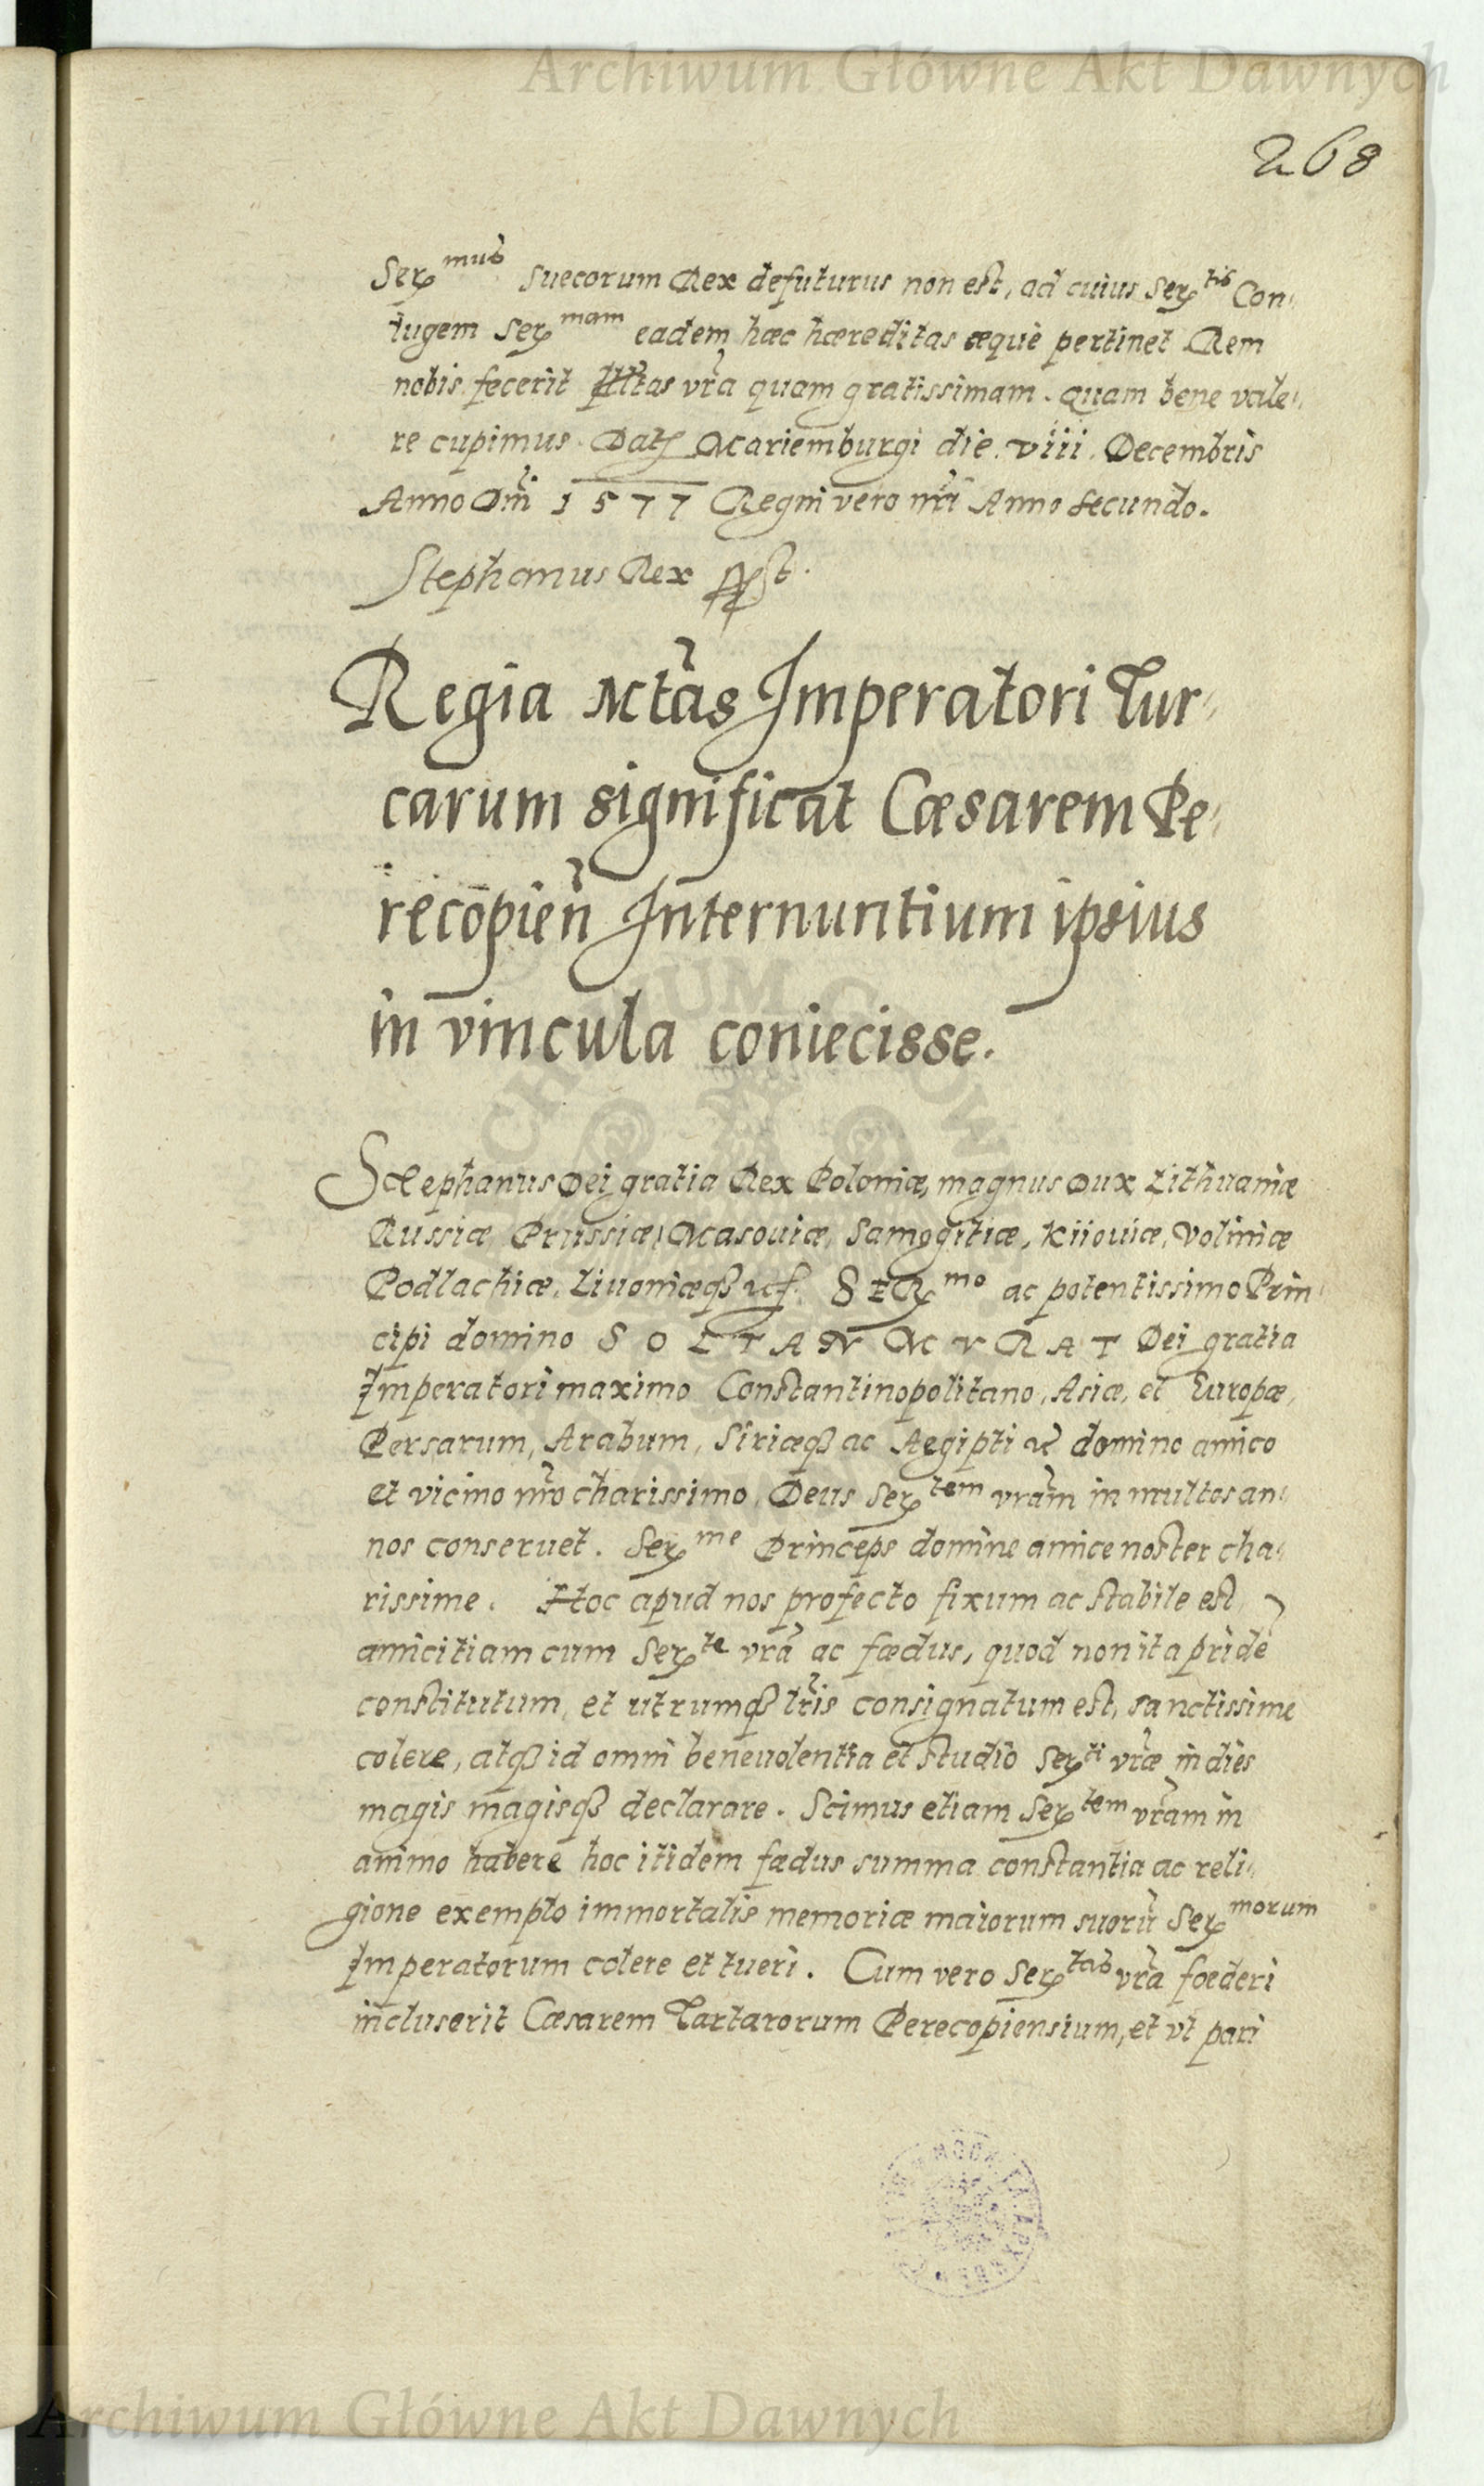 Archiwum Główne Akt Dawnych
268
Ser^mus Suecorum Rex defuturus non est, ad cuius Ser^tis Con,,
iugem Ser^mam eadem hæc hæreditas æquè pertinet Rem
nobis fecerit vrã quam gratissimam. Quam bene vale,,
re cupimus. Dat Mariemburgi die. viii. Decembris
Anno Dm̃i 1577 Regni vero nr̃i Anno secundo.
Stephanus Rex sst.
Regia Mtãs Imperatori Tur,,
carum significat Cæsarem Pe,,
recopien̄ Internuntium ipsius
in vincula coniecisse.
Stephanus Dei gratia Rex Poloniæ, magnus Dux Lithuaniæ
Russiæ Prussiæ, Masouiæ, Samogitiæ, Kiiouiæ, Voliniæ
Podlachiæ, Liuoniæq3 SER^mo ac potentissimo Prin,,
cipi domino SOLTAN MVRAT Dei gratia
Imperatori maximo Constantinopolitano, Asiæ, et Europæ,
Persarum, Arabum, Siriæq3 ac Aegipti &c domino amico
et vicino nr̃o charissimo, Deus Ser^tem vrãm in multos an,,
nos conseruet. Ser^me Princeps domine amice noster cha,,
rissime. Hoc apud nos profecto fixum ac stabile est,
amicitiam cum Ser^te vrã ac fædus, quod non ita pridē
constitutum, et utrumq3 lr̃is consignatum est, sanctissime
colere, atq3 id omni beneuolentia et studio Ser^ti vræ̃ in dies
magis magisq3 declarare. Scimus etiam Ser^tem vrãm in
animo habere hoc itidem fædus summa constantia ac reli,,
gione exemplo immortalis memoriæ maiorum suorū Ser^morum
Imperatorum colere et tueri. Cum vero Ser^tas vrã foederi
incluserit Cæsarem Tartarorum Perecopiensium, et vt pari
Archiwum Główne Akt Dawnych